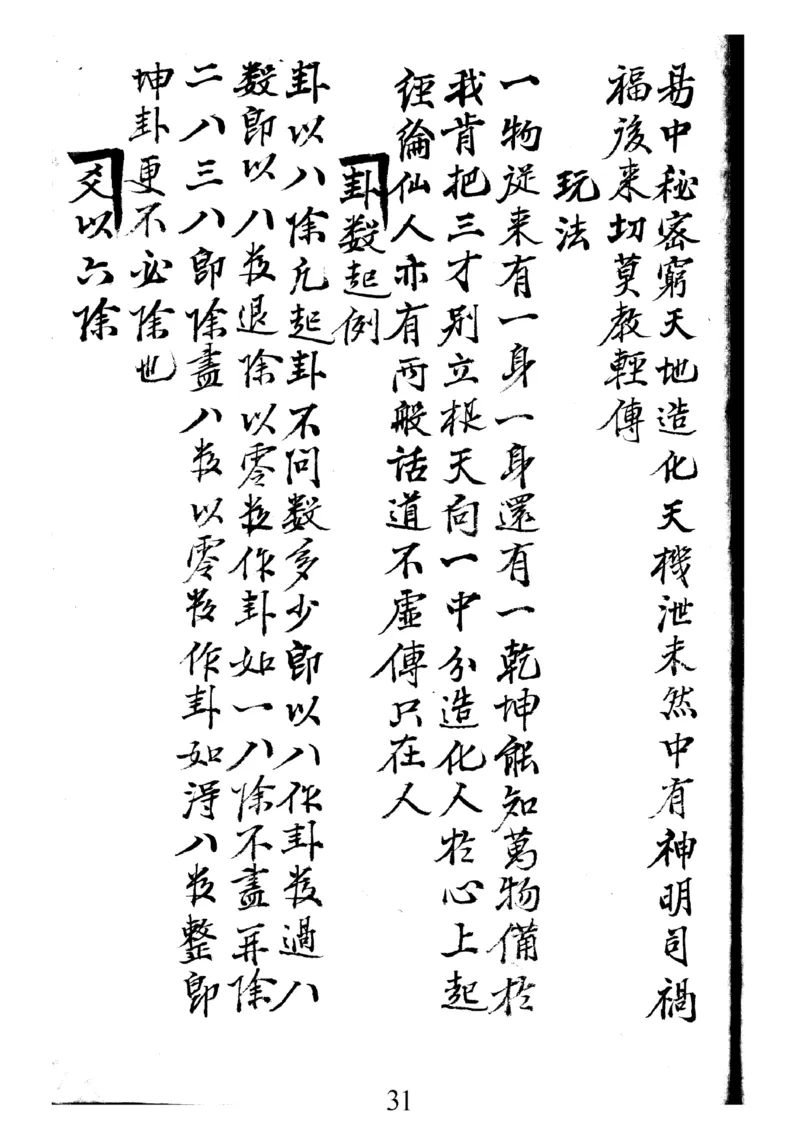 易中秘密窮天地造化天機泄未然中有神明司禍
福後来切莫教輕傳
玩法
一物從来有一身一身還有一乾坤能知萬物備於
我肯把三才别立根天向一中分造化人於心上起
經綸仙人亦有兩般話道不虛傳只在人
卦数起例
卦以八除凡起卦不問数多少即以八作卦数過八
数即以八数退除以零数作卦如一八除不盡再除
二八三八即除盡八数以零数作卦如得八数整即
坤卦更不必除也
爻以六除
31